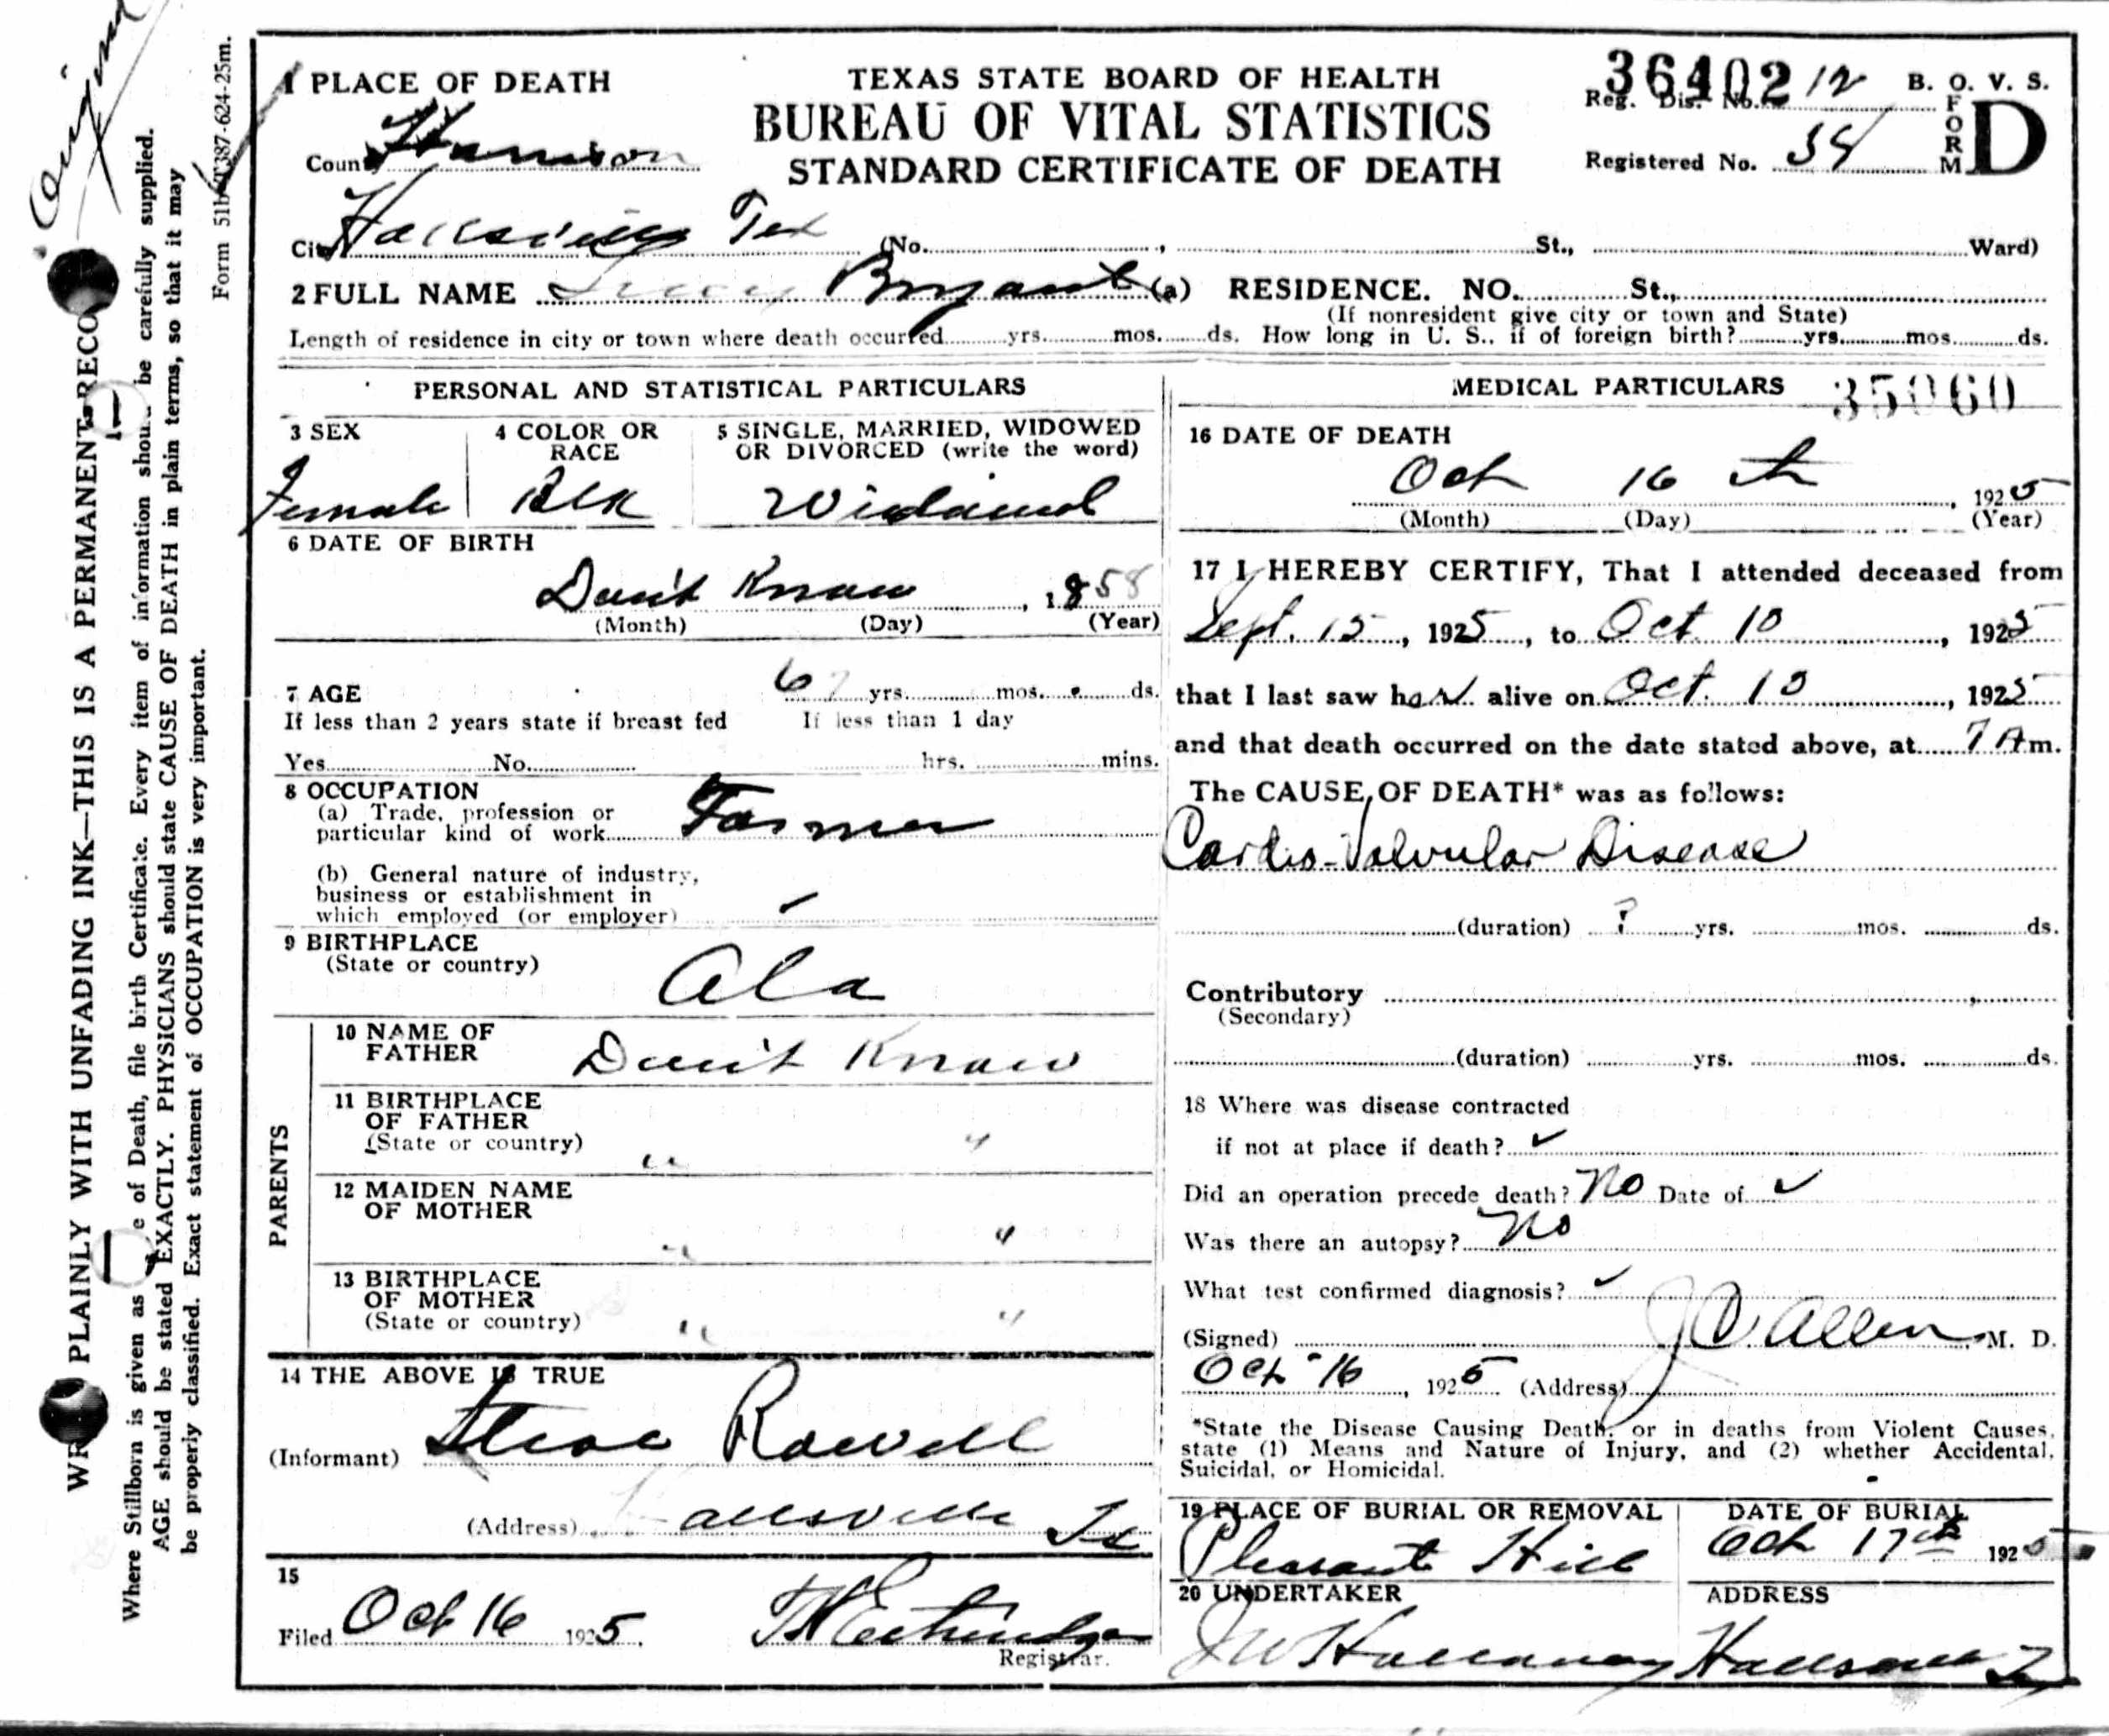 Original
1 PLACE OF DEATH
TEXAS STATE BOARD OF HEALTH
BUREAU OF VITAL STATISTICS
STANDARD CERTIFICATE OF DEATH
36402
Reg. Dis. No. 12
B. O. V. S.
FORM D
Registered No. 34
County Harrison
City Hallsville Tex (No. , St., Ward)
2 FULL NAME Lucy Bryant (a) RESIDENCE. NO. St.,
(If nonresident give city or town and State)
Length of residence in city or town where death occurred yrs. mos. ds. How long in U. S., if of foreign birth? yrs. mos. ds.
PERSONAL AND STATISTICAL PARTICULARS
3 SEX
Female
4 COLOR OR RACE
Blk
5 SINGLE, MARRIED, WIDOWED
OR DIVORCED (write the word)
Widowed
6 DATE OF BIRTH
Don't Know , 1858
(Month) (Day) (Year)
7 AGE 67 yrs. mos. ds.
If less than 2 years state if breast fed If less than 1 day
Yes No hrs. mins.
8 OCCUPATION
(a) Trade, profession or
particular kind of work Farmer
(b) General nature of industry,
business or establishment in
which employed (or employer)
9 BIRTHPLACE
(State or country) Ala
PARENTS
10 NAME OF
FATHER Don't Know
11 BIRTHPLACE
OF FATHER
(State or country) " "
12 MAIDEN NAME
OF MOTHER " "
13 BIRTHPLACE
OF MOTHER
(State or country) " "
14 THE ABOVE IS TRUE
(Informant) Rowell
(Address) Hallsville Tx
15
Filed Oct 16 1925.
Registrar.
MEDICAL PARTICULARS 35060
16 DATE OF DEATH
Oct 16 th , 1925
(Month) (Day) (Year)
17 I HEREBY CERTIFY, That I attended deceased from
Sept. 15, 1925, to Oct 10, 1925
that I last saw her alive on Oct. 10, 1925
and that death occurred on the date stated above, at 7 Am.
The CAUSE OF DEATH* was as follows:
Cardio-Valvular Disease
(duration) ? yrs. mos. ds.
Contributory
(Secondary)
(duration) yrs. mos. ds.
18 Where was disease contracted
if not at place if death?
Did an operation precede death? No Date of
Was there an autopsy? No
What test confirmed diagnosis?
(Signed) J C Allen M. D.
Oct-16, 1925 (Address)
*State the Disease Causing Death, or in deaths from Violent Causes,
state (1) Means and Nature of Injury, and (2) whether Accidental,
Suicidal, or Homicidal.
19 PLACE OF BURIAL OR REMOVAL
Pleasant Hill
DATE OF BURIAL
Oct 17th 1925
20 UNDERTAKER
J W Hallaway
ADDRESS
Hallsville Tx
Form 51b-T387-624-25m.
WR PLAINLY WITH UNFADING INK—THIS IS A PERMANENT RECO
Where Stillborn is given as e of Death, file birth Certificate. Every item of information shou be carefully supplied.
AGE should be stated EXACTLY. PHYSICIANS should state CAUSE OF DEATH in plain terms, so that it may
be properly classified. Exact statement of OCCUPATION is very important.